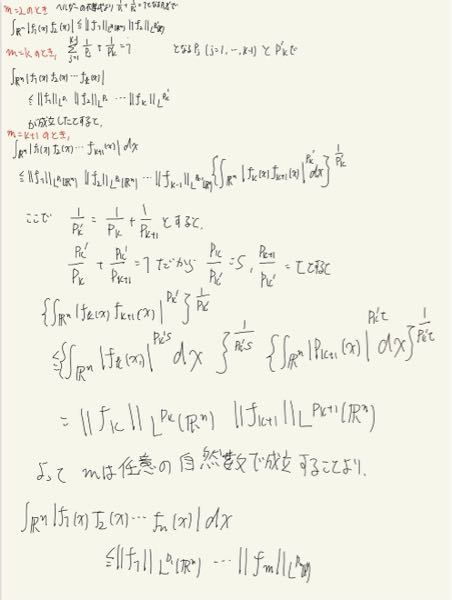 m=2のとき ヘルダーの不等式より 1/p₁ + 1/p₂ = 1となるp₁,p₂で
∫_ℝⁿ |f₁(x) f₂(x)| ≦ ||f₁||_L^p₁(ℝⁿ) ||f₂||_L^p₂(ℝⁿ)
m=kのとき, Σ_{j=1}^{k-1} 1/p_j + 1/p_k' = 1 となるp_j (j=1,…,k-1) とp_k'で
∫_ℝⁿ |f₁(x) f₂(x) … f_k(x)|
≦ ||f₁||_L^p₁ ||f₂||_L^p₂ … ||f_k||_L^p_k'
が成立したとすると,
m=k+1のとき,
∫_ℝⁿ |f₁(x) f₂(x) … f_{k+1}(x)| dx
≦ ||f₁||_L^p₁(ℝⁿ) ||f₂||_L^p₂(ℝⁿ) … ||f_{k-1}||_L^p_{k-1}(ℝⁿ) {∫_ℝⁿ |f_k(x) f_{k+1}(x)|^{p_k'} dx}^{1/p_k'}
ここで 1/p_k' = 1/p_k + 1/p_{k+1} とすると,
p_k'/p_k + p_k'/p_{k+1} = 1 だから p_k/p_k' = s, p_{k+1}/p_k' = t とすると
{∫_ℝⁿ |f_k(x) f_{k+1}(x)|^{p_k'}}^{1/p_k'}
≦ {∫_ℝⁿ |f_k(x)|^{p_k's} dx}^{1/p_k's} {∫_ℝⁿ |f_{k+1}(x)|^{p_k't} dx}^{1/p_k't}
= ||f_k||_L^p_k(ℝⁿ) ||f_{k+1}||_L^p_{k+1}(ℝⁿ)
よって mは任意の自然数で成立することより,
∫_ℝⁿ |f₁(x) f₂(x) … f_m(x)| dx
≦ ||f₁||_L^p₁(ℝⁿ) … ||f_m||_L^p_m(ℝⁿ)